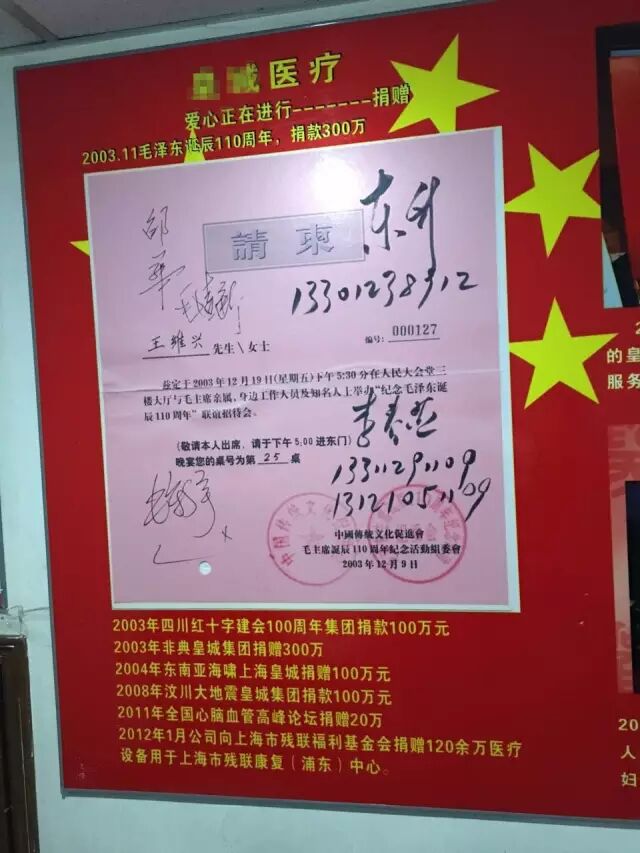 城医疗
爱心正在进行-------捐赠
2003.11毛泽东诞辰110周年，捐款300万
請柬
东升
邵华
毛新宇
13301238912
王维兴 先生\女士
编号: 000127
兹定于2003年12月19日(星期五)下午5:30分在人民大会堂三
楼大厅与毛主席亲属，身边工作人员及知名人士举办"纪念毛泽东诞
辰110周年"联谊招待会。
李春亚
(敬请本人出席，请于下午5:00进东门)
晚宴您的桌号为第 25 桌
13311291109
13121051109
中國傳統文化促進會
毛主席誕辰110周年紀念活動組委會
2003年12月9日
2003年四川红十字建会100周年集团捐款100万元
2003年非典皇城集团捐赠300万
2004年东南亚海啸上海皇城捐赠100万元
2008年汶川大地震皇城集团捐款100万元
2011年全国心脑血管高峰论坛捐赠20万
2012年1月公司向上海市残联福利基金会捐赠120余万医疗
设备用于上海市残联康复（浦东）中心。
的皇
服务
20
人
妇